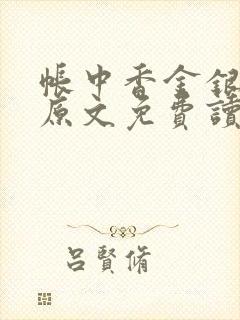 帳中香金銀
原文免費讀
呂賢脩